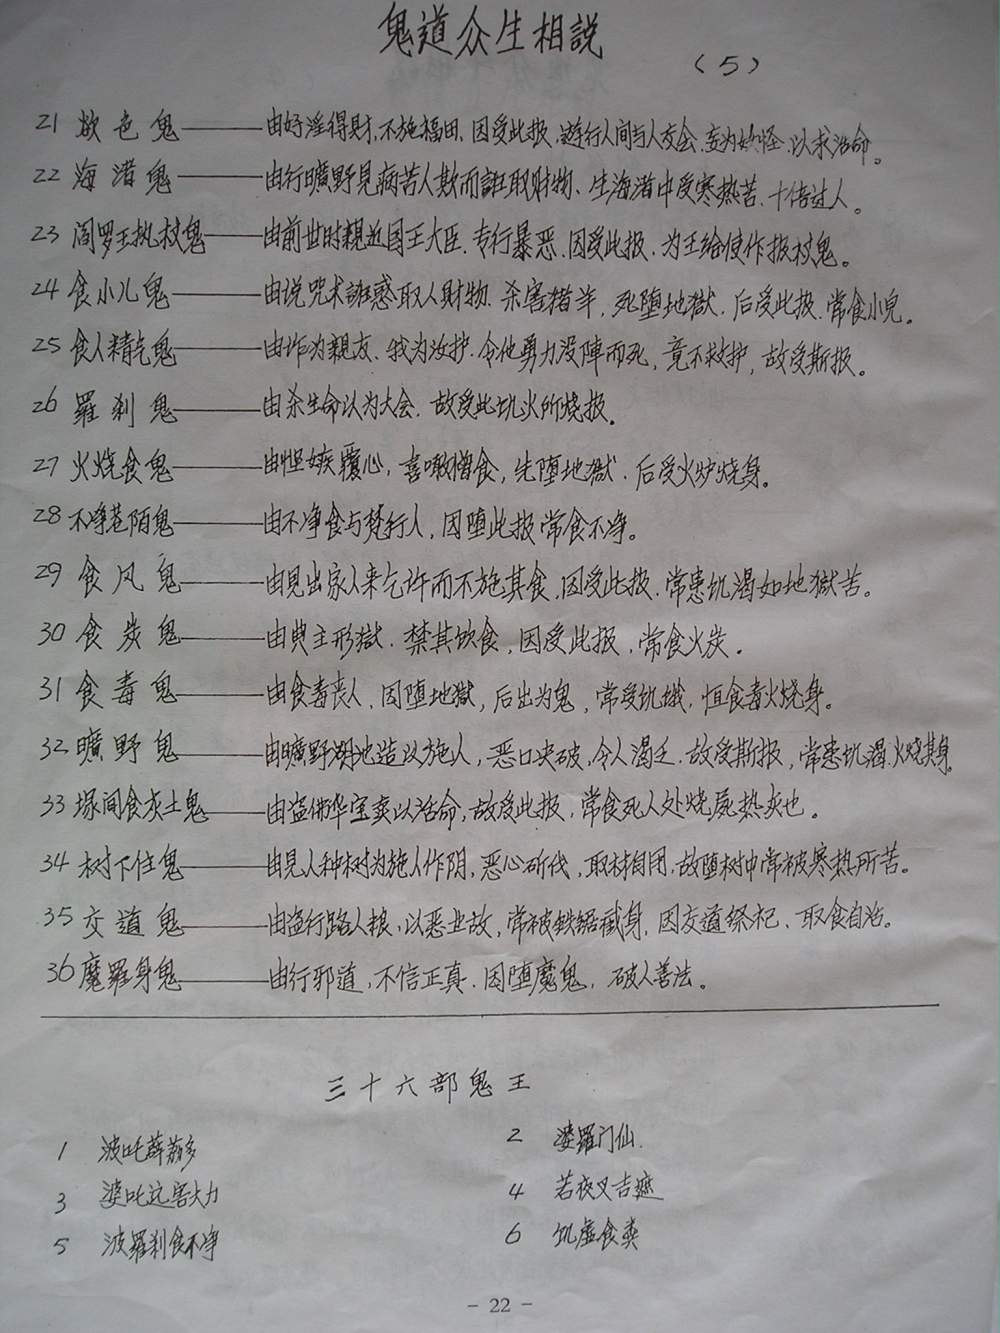 鬼道众生相説
（5）
21 欲色鬼——由好淫得財，不施福田，因受此报，遊行人间与人交会，妄为妖怪，以求活命。
22 海渚鬼——由行曠野見病苦人欺而誑取财物、生海渚中受寒热苦、十倍过人。
23 阎罗王执杖鬼——由前世时親近国王大臣、专行暴恶、因受此报、为王给使作报杖鬼。
24 食小儿鬼——由说咒术誑惑取人財物、杀害猪羊，死堕地獄、后受此报、常食小兒。
25 食人精气鬼——由诈为親友、我为汝护、令他勇力没陣而死，竟不救护，故受斯报。
26 羅刹鬼——由杀生命以为大会、故受此饥火所烧报。
27 火烧食鬼——由悭嫉覆心，喜噉僧食，先堕地獄、后受火炉烧身。
28 不净巷陌鬼——由不净食与梵行人，因堕此报常食不净。
29 食风鬼——由見出家人来乞许而不施其食、因受此报、常患饥渴如地獄苦。
30 食炭鬼——由典主形獄、禁其饮食，因受此报，常食火炭。
31 食毒鬼——由食毒丧人、因堕地獄，后出为鬼，常受饥饿、恒食毒火烧身。
32 曠野鬼——由曠野湖池造以施人，恶口决破，令人渴乏、故受斯报，常患饥渴、火烧其身。
33 塚间食灰土鬼——由盗佛华宝卖以活命，故受此报，常食死人处烧屍热灰也。
34 树下住鬼——由見人种树为施人作阴，恶心斫伐，取材自用，故堕树中常被寒热所苦。
35 交道鬼——由盗行路人粮，以恶业故，常被铁锯截身，因交道祭祀、取食自活。
36 魔羅身鬼——由行邪道，不信正真、因堕魔鬼，破人善法。
三十六部鬼王
1 波吒薜荔多 2 婆羅门仙.
3 婆吒这害大力 4 若夜叉吉遮
5 波羅刹食不净 6 饥虚食粪
- 22 -